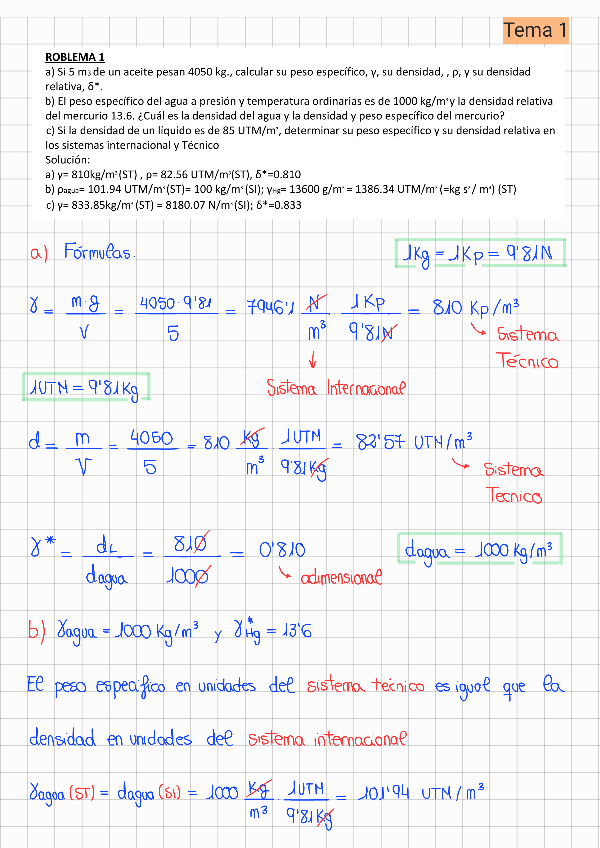 Tema 1
ROBLEMA 1
a) Si 5 m3 de un aceite pesan 4050 kg., calcular su peso específico, γ, su densidad, , ρ, y su densidad
relativa, δ*.
b) El peso específico del agua a presión y temperatura ordinarias es de 1000 kg/m³ y la densidad relativa
del mercurio 13.6. ¿Cuál es la densidad del agua y la densidad y peso específico del mercurio?
c) Si la densidad de un líquido es de 85 UTM/m³, determinar su peso específico y su densidad relativa en
los sistemas internacional y Técnico
Solución:
a) γ= 810kg/m³(ST) , ρ= 82.56 UTM/m³(ST), δ*=0.810
b) ρagua= 101.94 UTM/m³(ST)= 100 kg/m³(SI); γHg= 13600 g/m³ = 1386.34 UTM/m³ (=kg s²/ m⁴) (ST)
c) γ= 833.85kg/m³(ST) = 8180.07 N/m³(SI); δ*=0.833
a) Fórmulas. 1Kg = 1Kp = 9'81N
γ = m·g / V = 4050·9'81 / 5 = 7946'1 N/m³ · 1Kp / 9'81N = 810 Kp/m³
Sistema
Técnico
1UTM = 9'81Kg Sistema Internacional
d = m / V = 4050 / 5 = 810 Kg/m³ · 1UTM / 9'81Kg = 82'57 UTM/m³
Sistema
Tecnico
γ* = dL / dagua = 810 / 1000 = 0'810 dagua = 1000 Kg/m³
adimensional
b) γagua = 1000 Kg/m³ y γ*Hg = 13'6
El peso especifico en unidades del sistema técnico es igual que la
densidad en unidades del sistema internacional
γagua (ST) = dagua (SI) = 1000 Kg/m³ · 1UTM / 9'81Kg = 101'94 UTM/m³